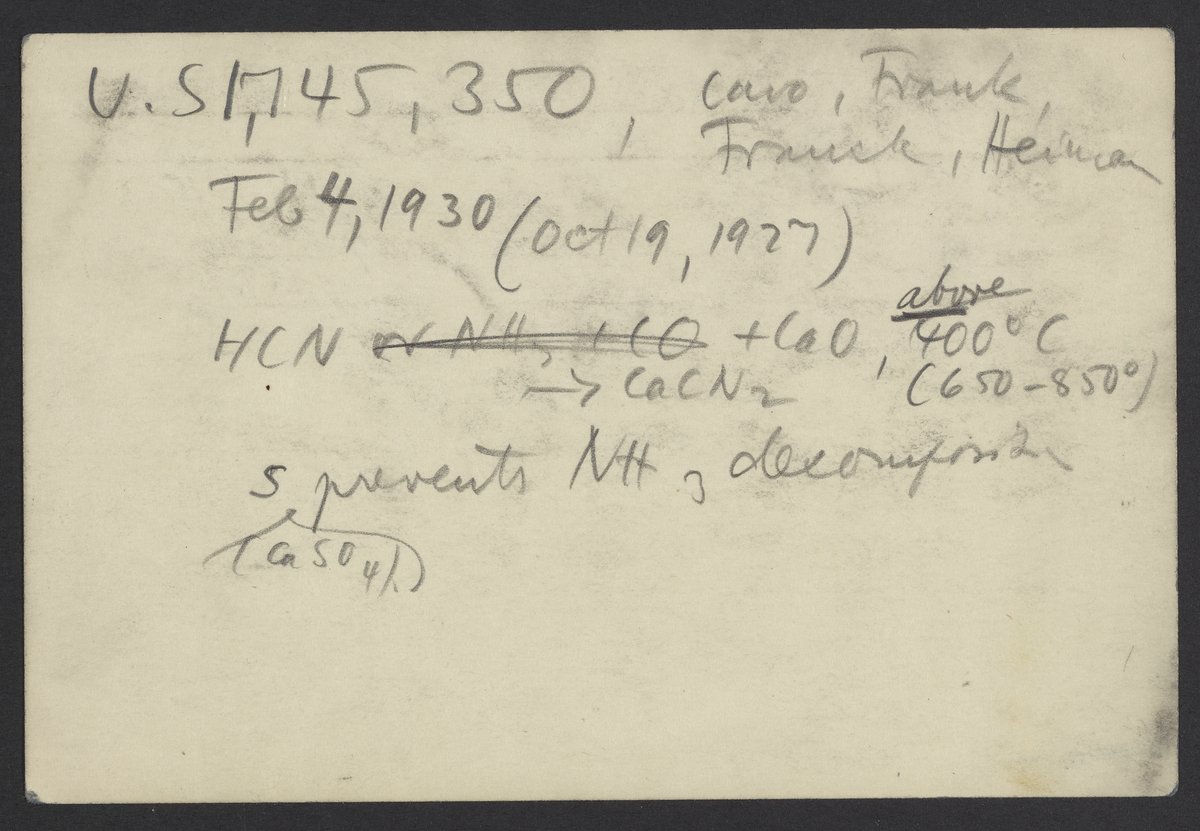 U.S 1,745,350, Caro, Frank,
Franck, Heiman
Feb 4, 1930 (Oct 19, 1927)
above
HCN or NH₃ + CO + CaO, 400° C
→ CaCN₂ (650-850°)
S prevents NH₃ decomposition
(CaSO₄)